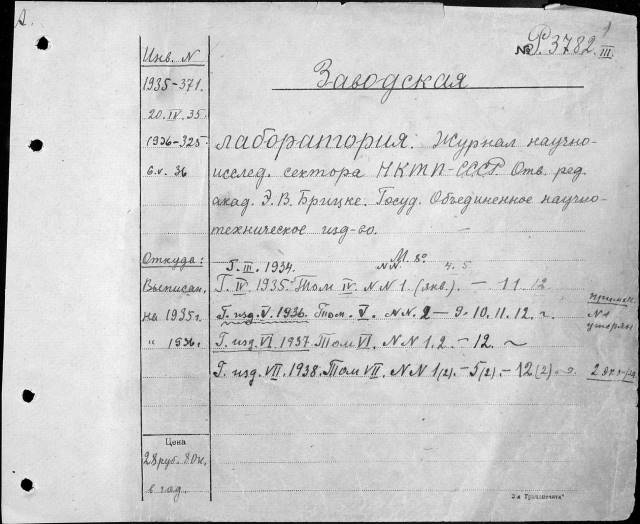 № Р. 3782 III.
Заводская
лаборатория. Журнал научно-
исслед. сектора НКТП-СССР. Отв. ред.
акад. Э. В. Брицке. Госуд. Объединенное научно-
техническое изд-во.
М. 8º
Г. III. 1934. NN. 4. 5
Г. IV 1935. Том IV. NN 1. (янв.). – 11. 12
Г. изд. V. 1936. Том. V. N.N. 2 – 9. 10. 11. 12.
N 1
Г. изд. VI. 1937. Том VI. NN 1. 2. – 12.
Г. изд. VII. 1938. Том VII. NN 1(2). – 5(2). – 12(2)
Инв. N
1935-371.
20.IV.35.
1936-325
6.V.36
Откуда:
Выписан.
на 1935г.
" 1936г.
Цена
28 руб. 80 к.
в год.